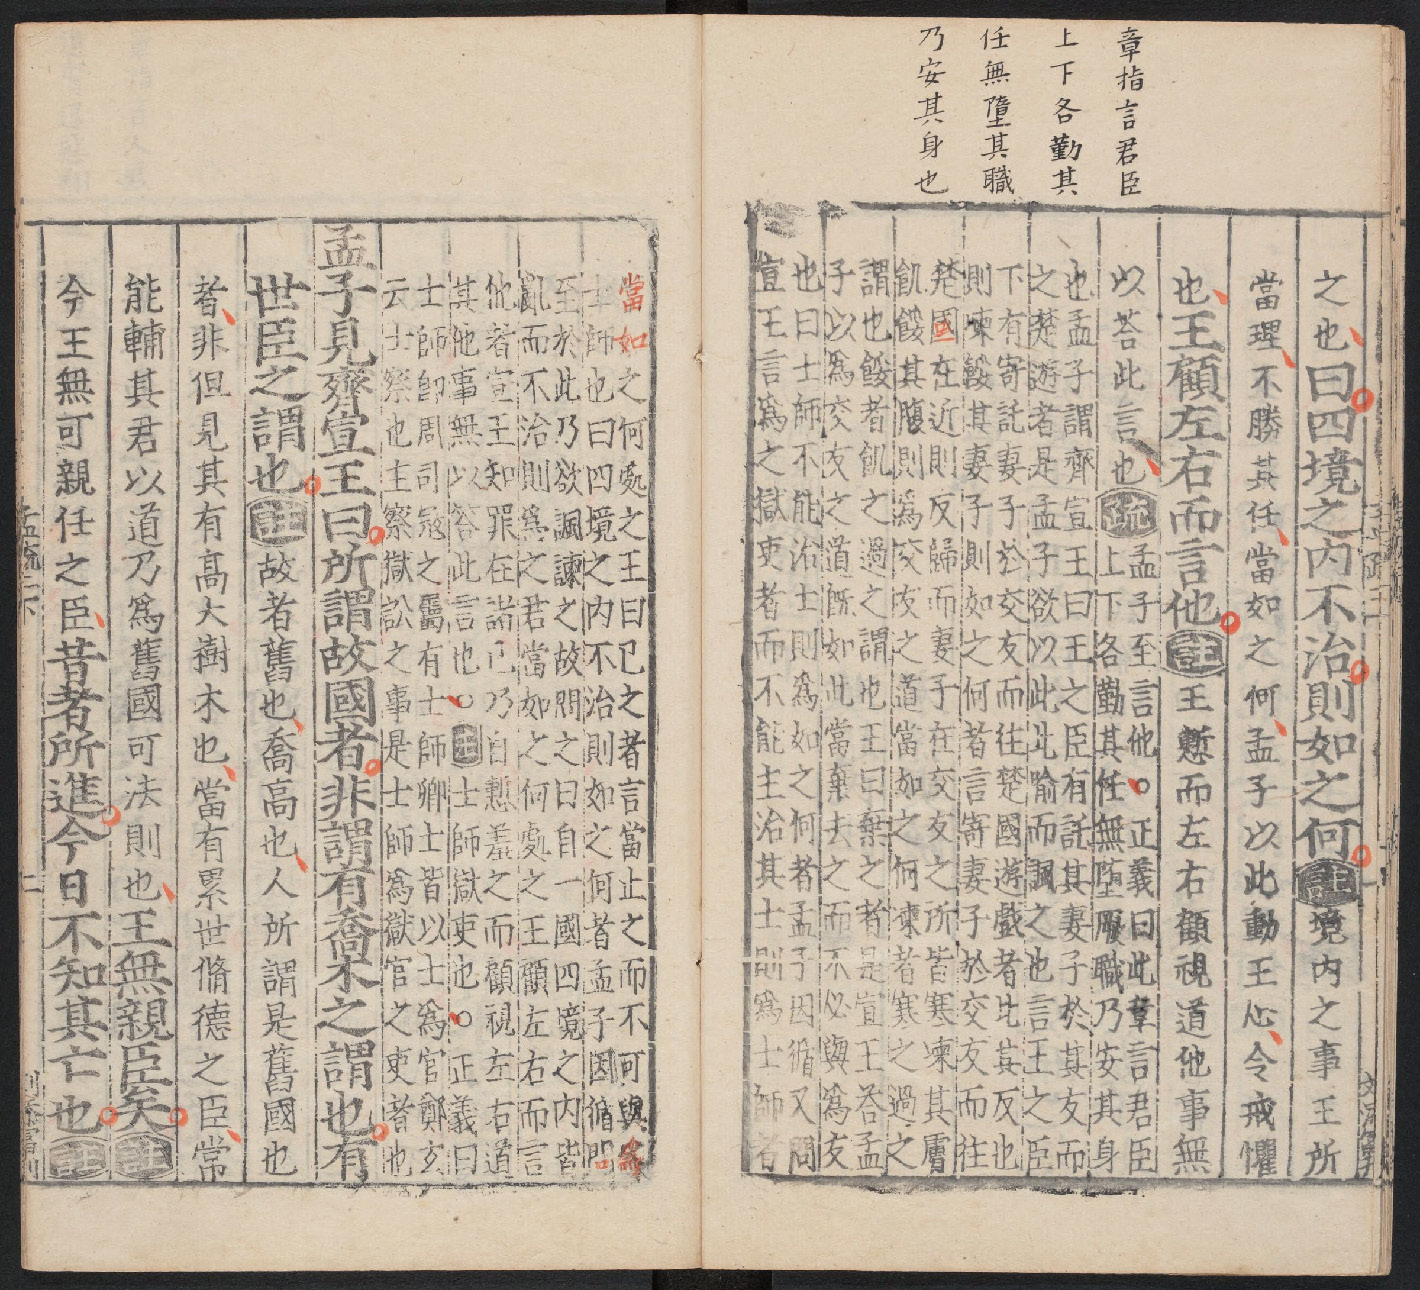 章指言君臣
上下各勤其
任無墮其職
乃安其身也
之也曰四境之內不治則如之何註境內之事王所
當理不勝其任當如之何孟子以此動王心令戒懼
也王顧左右而言他註王慙而左右顧視道他事無
以荅此言也疏孟子至言他○正義曰此章言君臣
上下各勤其任無墮厥職乃安其身
也孟子謂齊宣王曰王之臣有託其妻子於其友而
之楚遊者是孟子欲以此比喻而諷之也言王之臣
下有寄託妻子於交友而往楚國遊戲者比其反也
則凍餒其妻子則如之何者言寄妻子於交友而往
楚國在近則反歸而妻子在交友之所皆寒凍其膚
飢餒其腹則為交友之道當如之何凍者寒之過之
謂也餒者飢之過之謂也王曰棄之者是宣王荅孟
子以為交友之道旣如此當棄去之而不必與為友
也曰士師不能治士則為如之何者孟子因循又問
宣王言為之獄吏者而不能主治其士則為士師者
當如之何處之王曰已之者言當止之而不可與為
士師也曰四境之內不治則如之何者孟子因循問
至於此乃欲諷諫之故問之曰自一國四境之內皆
亂而不治則為之君當如之何處之王顧左右而言
他者宣王知罪在諸己乃自慙羞之而顧視左右道
其他事無以荅此言也○註士師獄吏也○正義曰
士師卽周司寇之屬有士師卿士皆以士為官鄭玄
云士察也主察獄訟之事是士師為獄官之吏者也
孟子見齊宣王曰所謂故國者非謂有喬木之謂也有
世臣之謂也註故者舊也喬高也人所謂是舊國也
者非但見其有高大樹木也當有累世脩德之臣常
能輔其君以道乃為舊國可法則也王無親臣矣註
今王無可親任之臣昔者所進今日不知其亡也註